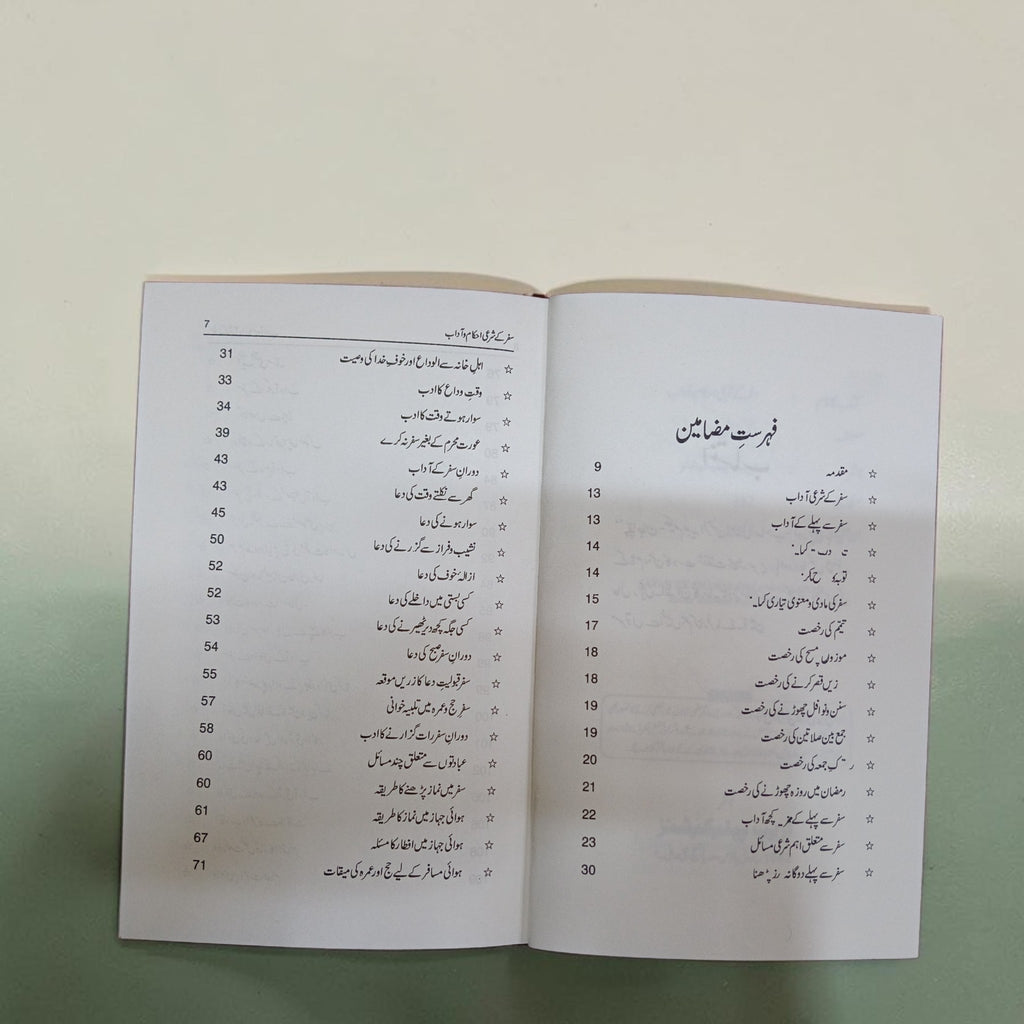 فہرستِ مضامین
☆ مقدمہ 9
☆ سفر کے شرعی آداب 13
☆ سفر سے پہلے کے آداب 13
☆ 14
☆ 14
☆ سفر کی مادی و معنوی تیاری 15
☆ تیمّم کی رخصت 17
☆ موزوں پر مسح کی رخصت 18
☆ قصر کرنے کی رخصت 18
☆ سنن و نوافل چھوڑنے کی رخصت 19
☆ جمع بین صلاتین کی رخصت 19
☆ جمعہ کی رخصت 20
☆ رمضان میں روزہ چھوڑنے کی رخصت 21
☆ سفر سے پہلے کے کچھ آداب 22
☆ سفر سے متعلق اہم شرعی مسائل 23
☆ سفر سے پہلے دوگانہ پڑھنا 30
سفر کے شرعی احکام و آداب 7
☆ اہلِ خانہ سے الوداع اور خوفِ خدا کی وصیت 31
☆ وقتِ وداع کا ادب 33
☆ سوار ہوتے وقت کا ادب 34
☆ عورت محرم کے بغیر سفر نہ کرے 39
☆ دورانِ سفر کے آداب 43
☆ گھر سے نکلتے وقت کی دعا 43
☆ سوار ہونے کی دعا 45
☆ نشیب و فراز سے گزرنے کی دعا 50
☆ ازالۂ خوف کی دعا 52
☆ کسی بستی میں داخلے کی دعا 52
☆ کسی جگہ کچھ دیر ٹھیرنے کی دعا 53
☆ دورانِ سفر صبح کی دعا 54
☆ سفر قبولیتِ دعا کا زریں موقعہ 55
☆ سفرِ حج و عمرہ میں تلبیہ خوانی 57
☆ دورانِ سفر رات گزارنے کا ادب 58
☆ عبادتوں سے متعلق چند مسائل 60
☆ سفر میں نماز پڑھنے کا طریقہ 60
☆ ہوائی جہاز میں نماز کا طریقہ 61
☆ ہوائی جہاز میں افطار کا مسئلہ 67
☆ ہوائی مسافر کے لیے حج اور عمرہ کی میقات 71